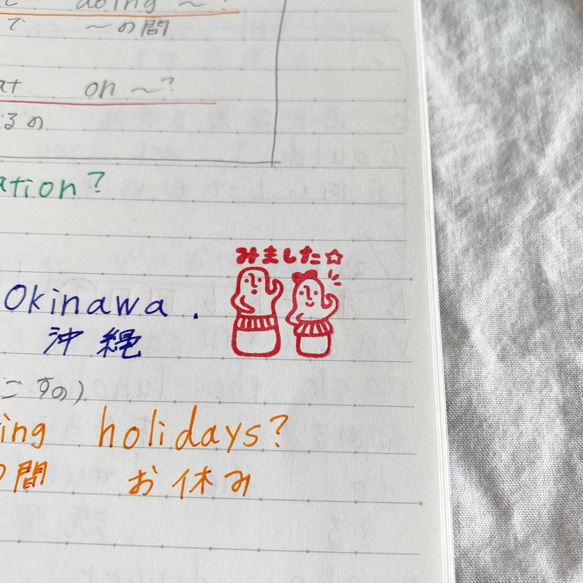 doing ～?
で ～の間
at on ～?
るの
ation?
みました☆
Okinawa.
沖縄
こすの)
ing holidays?
の間 お休み